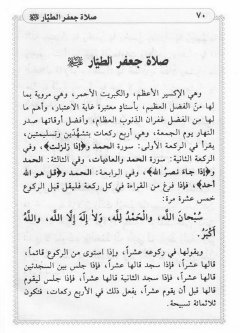 ٧٠ صلاة جعفر الطيّار
صلاة جعفر الطيّار
وهي الإكسير الأعظم، والكبريت الأحمر، وهي مروية بما
لها من الفضل العظيم، بأسناد معتبرة غاية الاعتبار، وأهم ما
لها من الفضل غفران الذنوب العظام، وأفضل أوقاتها صدر
النهار يوم الجمعة، وهي أربع ركعات بتشهّدين وتسليمتين،
يقرأ في الركعة الأولى: سورة الحمد و﴿إذا زلزلت﴾، وفي
الركعة الثانية: سورة الحمد والعاديات، وفي الثالثة: الحمد
و﴿إذا جاءَ نصرُ الله﴾، وفي الرابعة: الحمد و﴿قل هو الله
أحد﴾، فإذا فرغ من القراءة في كل ركعة فليقل قبل الركوع
خمس عشرة مرة:
سُبْحَانَ اللَّهِ، وَالْحَمْدُ لِلَّهِ، وَلَا إِلَهَ إِلَّا اللَّهُ، وَاللَّهُ
أَكْبَرُ.
ويقولها في ركوعه عشراً، وإذا استوى من الركوع قائماً،
قالها عشراً، فإذا سجد قالها عشراً، فإذا جلس بين السجدتين
قالها عشراً، فإذا سجد الثانية قالها عشراً، فإذا جلس ليقوم
قالها قبل أن يقوم عشراً، يفعل ذلك في الأربع ركعات، فتكون
ثلاثمائة تسبيحة.